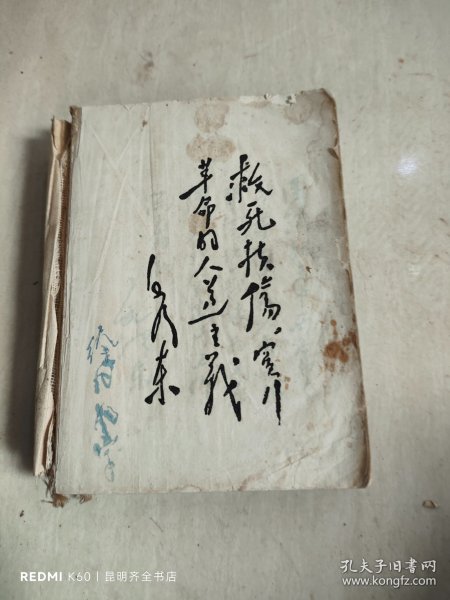 救死扶傷，实行
革命的人道主义
毛泽东
REDMI K60 | 昆明齐全书店
孔夫子旧书网
www.kongfz.com